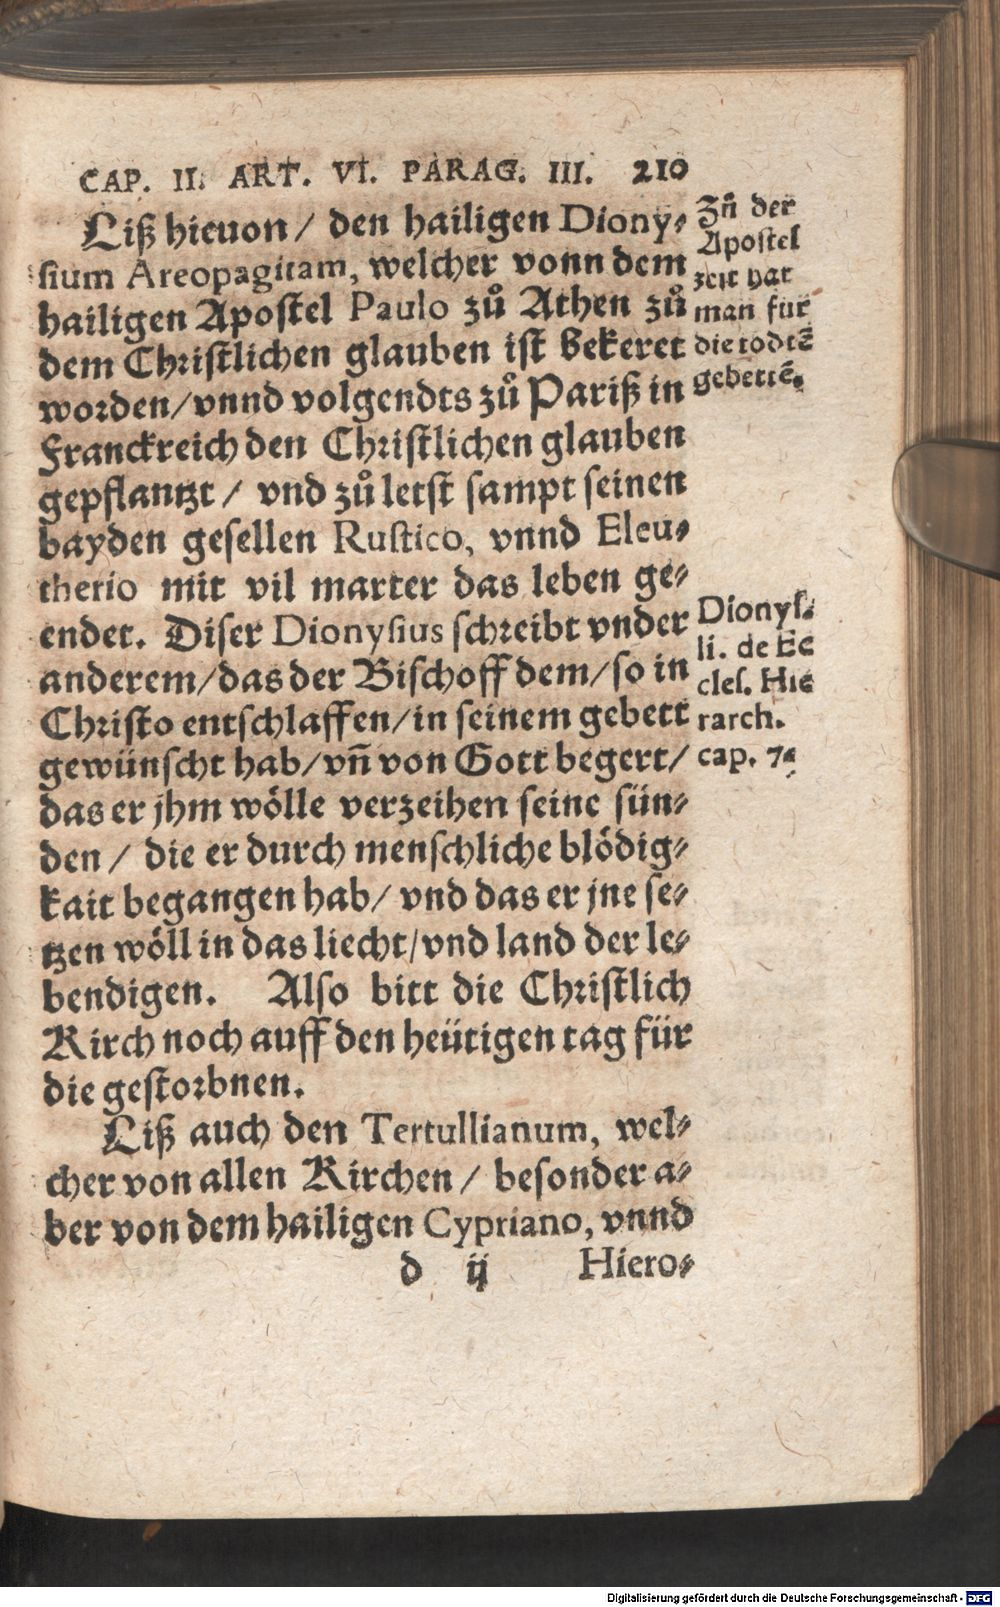 CAP. II. ART. VI. PARAG. III. 210
Liß hieuon / den hailigen Diony⸗
sium Areopagitam, welcher vonn dem
hailigen Apostel Paulo zuͦ Athen zuͦ
dem Christlichen glauben ist bekeret
worden / vnnd volgendts zuͦ Pariß in
Franckreich den Christlichen glauben
gepflantzt / vnd zuͦ letst sampt seinen
bayden gesellen Rustico, vnnd Eleu⸗
therio mit vil marter das leben ge⸗
endet. Diser Dionysius schreibt vnder
anderem / das der Bischoff dem / so in
Christo entschlaffen / in seinem gebett
gewünscht hab / vn̄ von Gott begert /
das er jhm wölle verzeihen seine sün⸗
den / die er durch menschliche blödig⸗
kait begangen hab / vnd das er jne se⸗
tzen wöll in das liecht / vnd land der le⸗
bendigen. Also bitt die Christlich
Kirch noch auff den heütigen tag für
die gestorbnen.
Liß auch den Tertullianum, wel⸗
cher von allen Kirchen / besonder a⸗
ber von dem hailigen Cypriano, vnnd
d ij Hiero⸗
Zuͦ der
Apostel
zeit hat
man für
die todtē
gebettē.
Dionys.
li. de Ec
cles. Hie
rarch.
cap. 7.
Digitalisierung gefördert durch die Deutsche Forschungsgemeinschaft - DFG